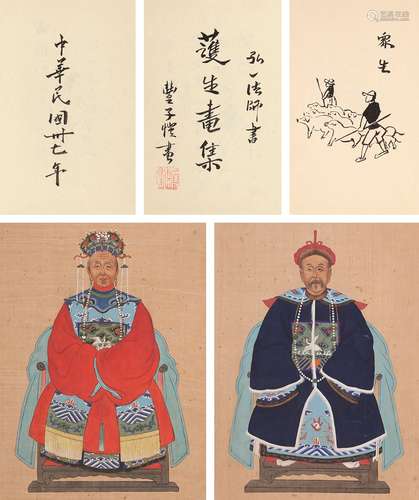 衆生
弘一法師書
護生畫集
豐子愷畫
中華民國卅七年